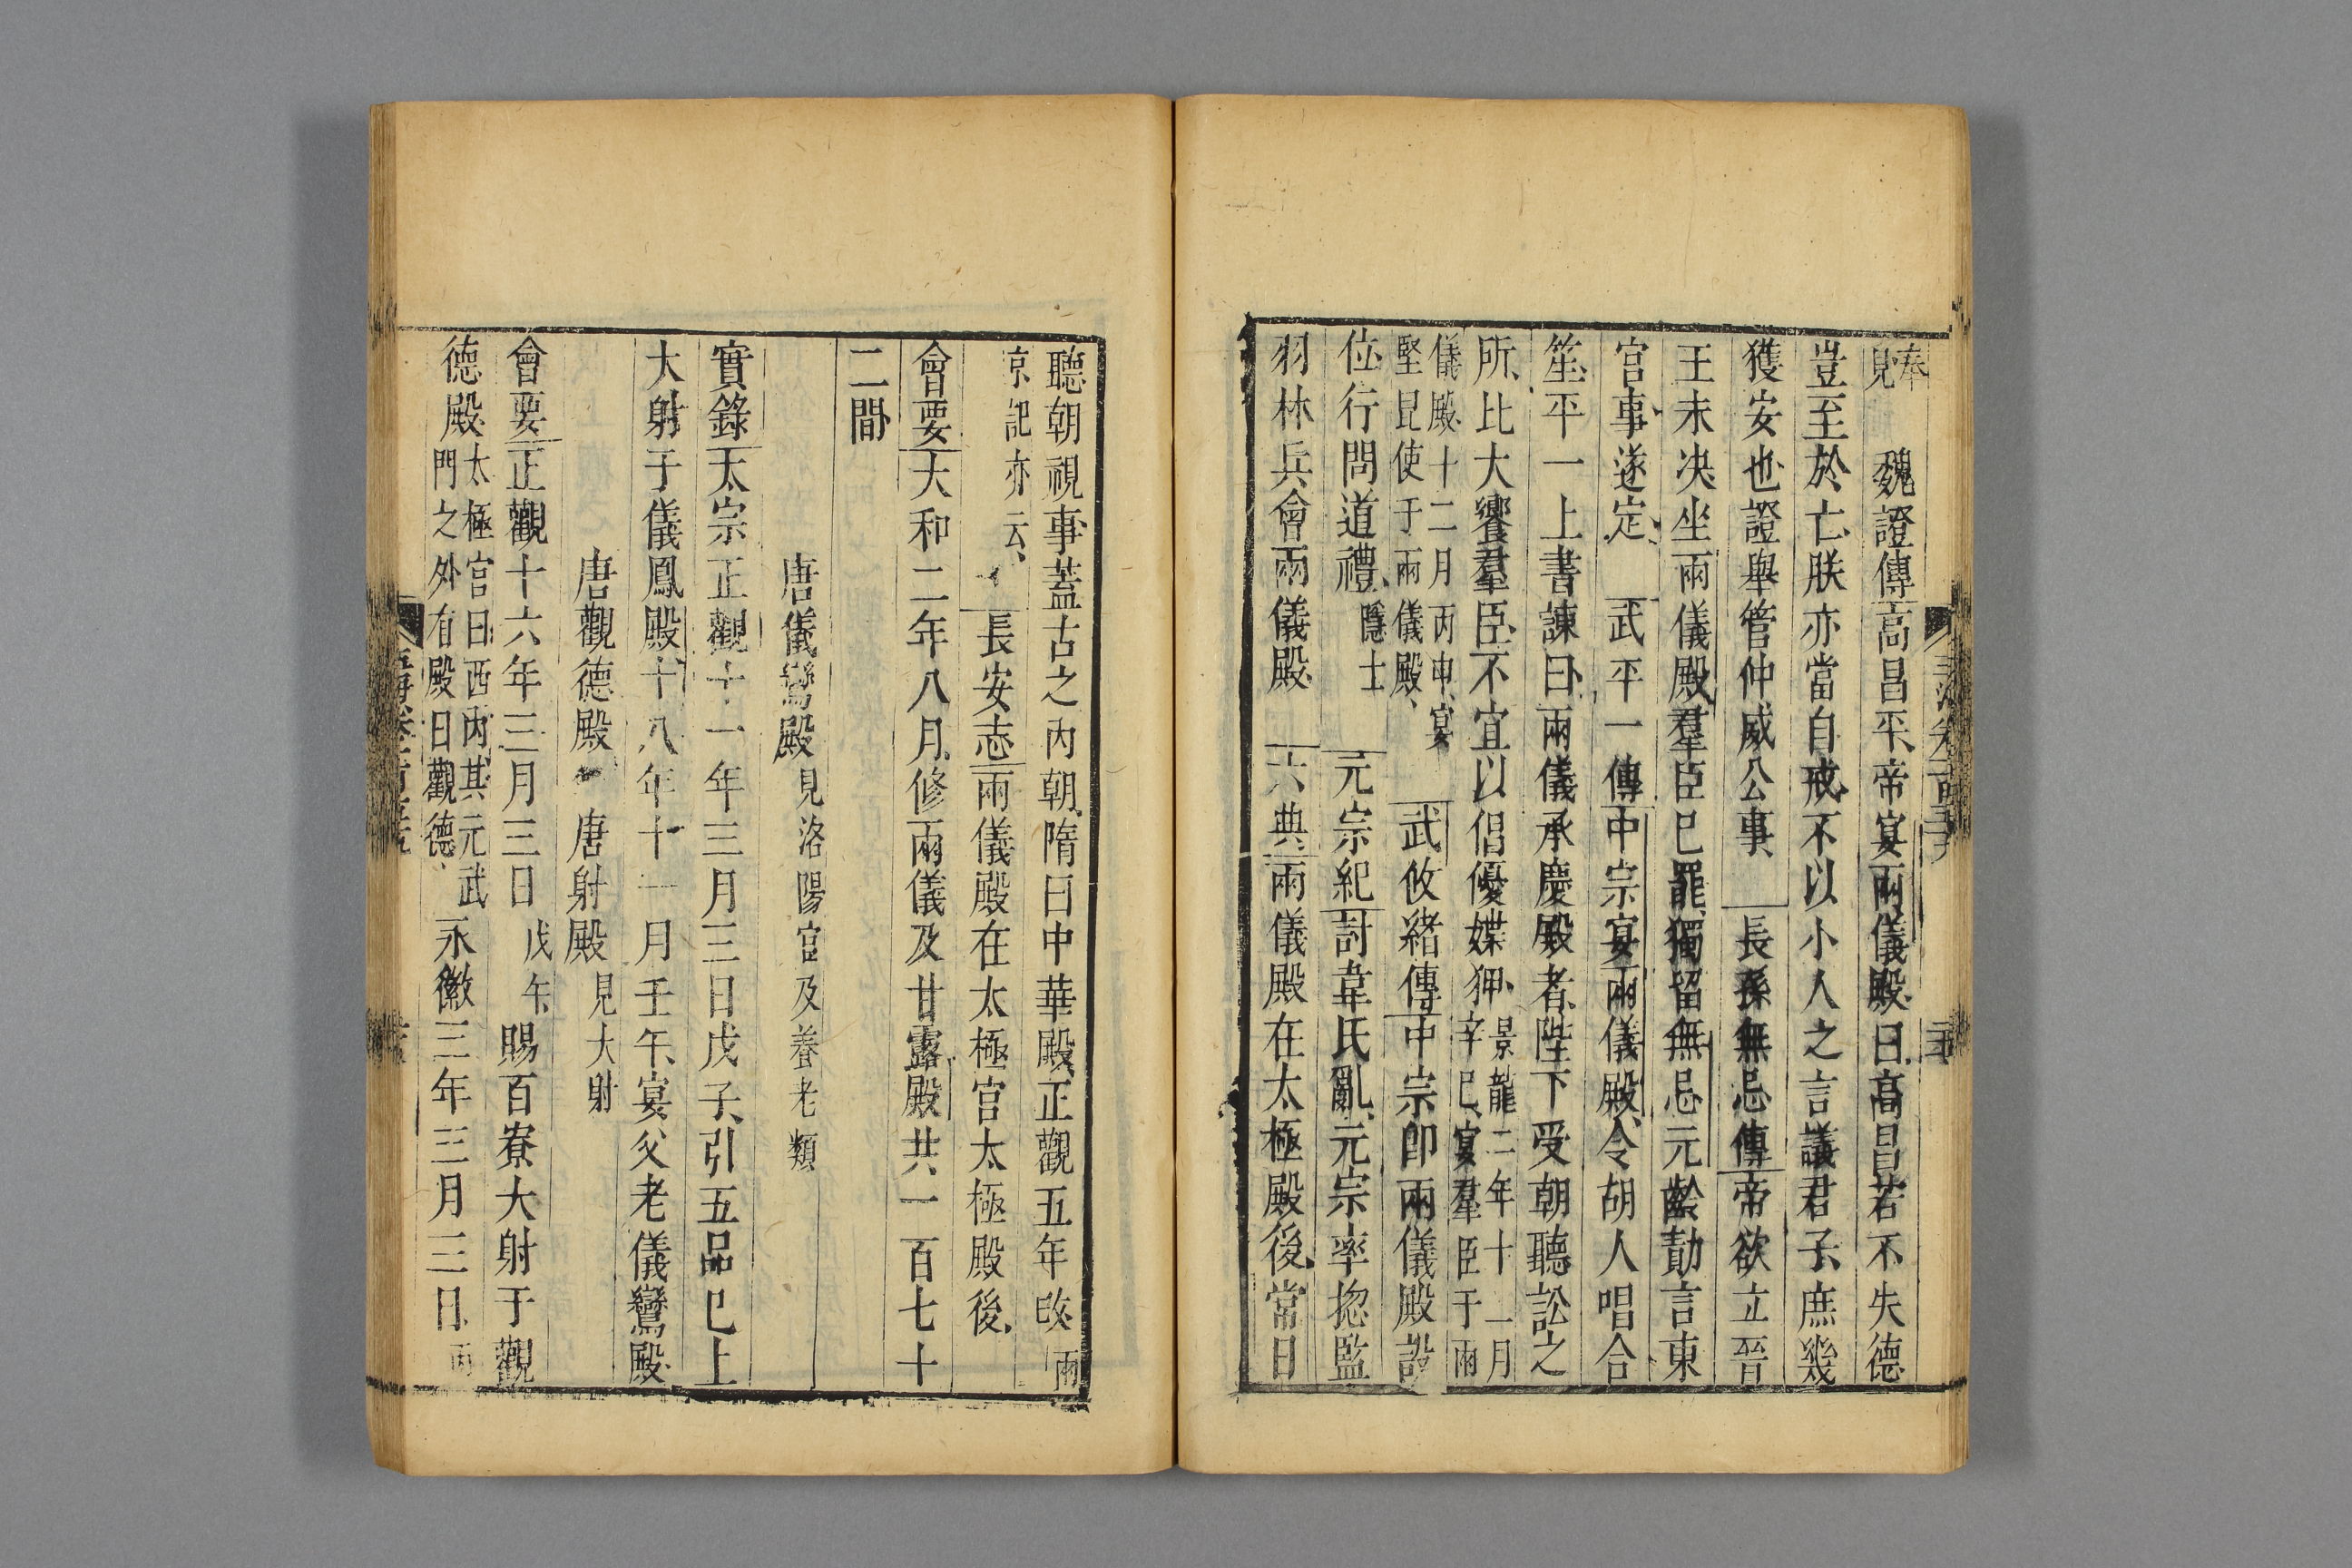 奉見　魏證傳高昌平帝宴兩儀殿曰高昌若不失德
豈至於亡朕亦當自戒不以小人之言議君子庶幾
獲安也證舉管仲威公事　長孫無忌傳帝欲立晉
王未决坐兩儀殿羣臣已罷獨留無忌元齡勣言東
宮事遂定　武平一傳中宗宴兩儀殿令胡人唱合
笙平一上書諫曰兩儀承慶殿者陛下受朝聽訟之
所比大饗羣臣不宜以倡優媟狎景龍二年十一月辛巳宴羣臣于兩
儀殿十二月丙申宴堅昆使于兩儀殿　武攸緒傳中宗卽兩儀殿設
位行問道禮隱士　元宗紀討韋氏亂元宗率揔監
羽林兵會兩儀殿　六典兩儀殿在太極殿後常日
聽朝視事蓋古之內朝隋曰中華殿正觀五年改兩
京記亦云　長安志兩儀殿在太極宮太極殿後
會要大和二年八月修兩儀及甘露殿共一百七十
二間
唐儀鸞殿見洛陽宮及養老類
實錄太宗正觀十一年三月三日戊子引五品已上
大射于儀鳳殿十八年十一月壬午宴父老儀鸞殿
唐觀德殿　唐射殿見大射
會要正觀十六年三月三日戊午賜百寮大射于觀
德殿太極宮曰西內其元武門之外有殿曰觀德　永徽三年三月三日丙